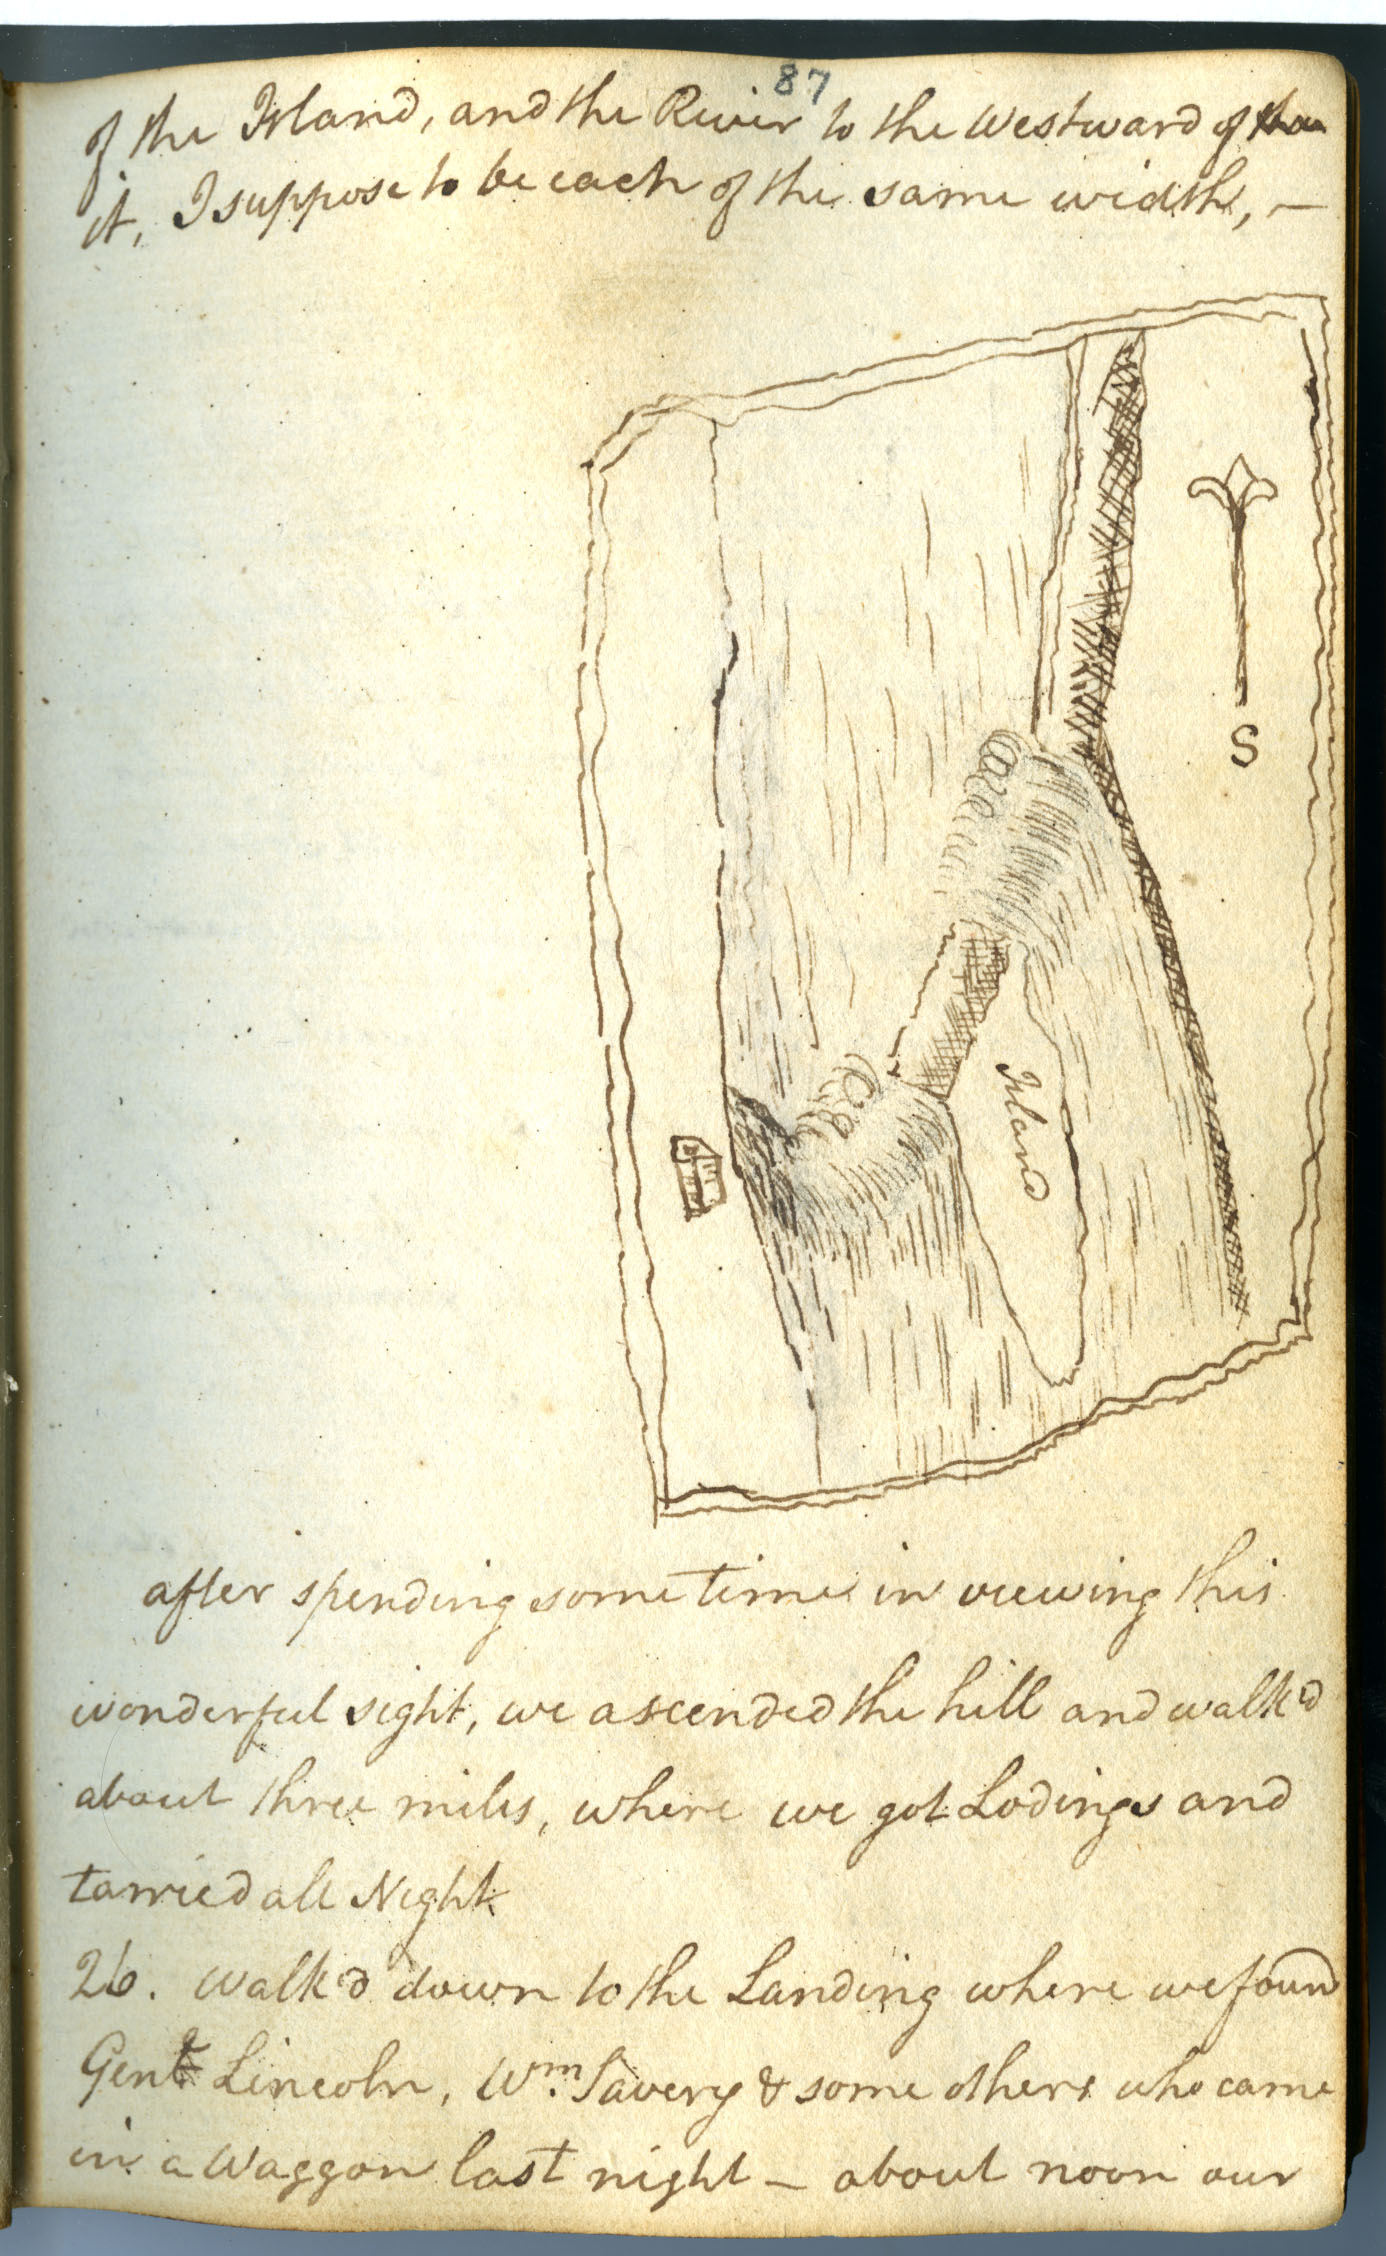 87
of the Island, and the River to the Westward of
it, I suppose to be each of the same width, —
S
Island
after spending some time in viewing this
wonderful sight, we ascended the hill and walk'd
about three miles, where we got Lodings and
tarried all Night
26. walk'd down to the Landing where we found
Genl Lincoln, Wm. Savery & some others who came
in a Waggon last night — about noon our